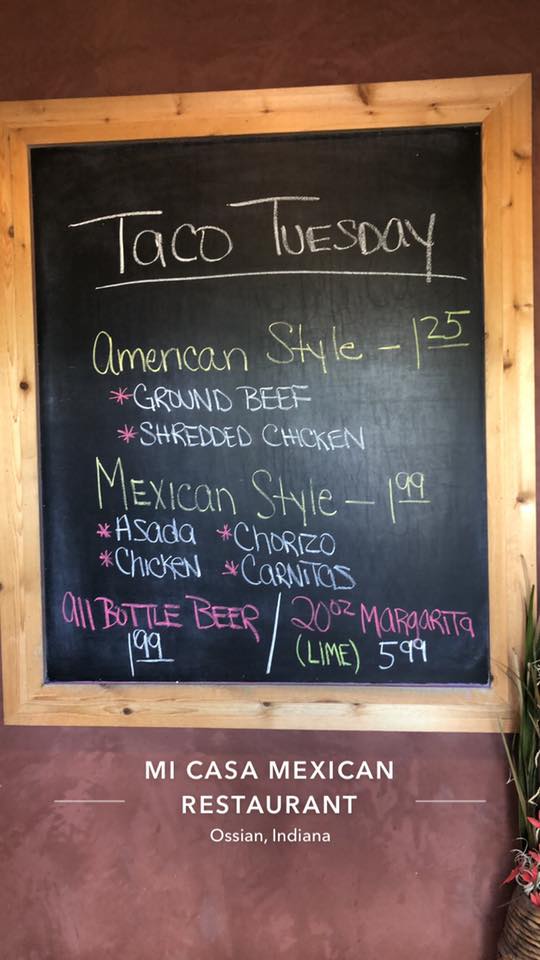 Taco Tuesday
American Style - 1 25
*GROUND BEEF
*SHREDDED CHICKEN
Mexican Style - 1 99
*Asada *CHORIZO
*CHICKEN *CARNITAS
All BOTTLE BEER / 20 oz MARGARITA
1 99 (LIME) 5 99
MI CASA MEXICAN
RESTAURANT
Ossian, Indiana